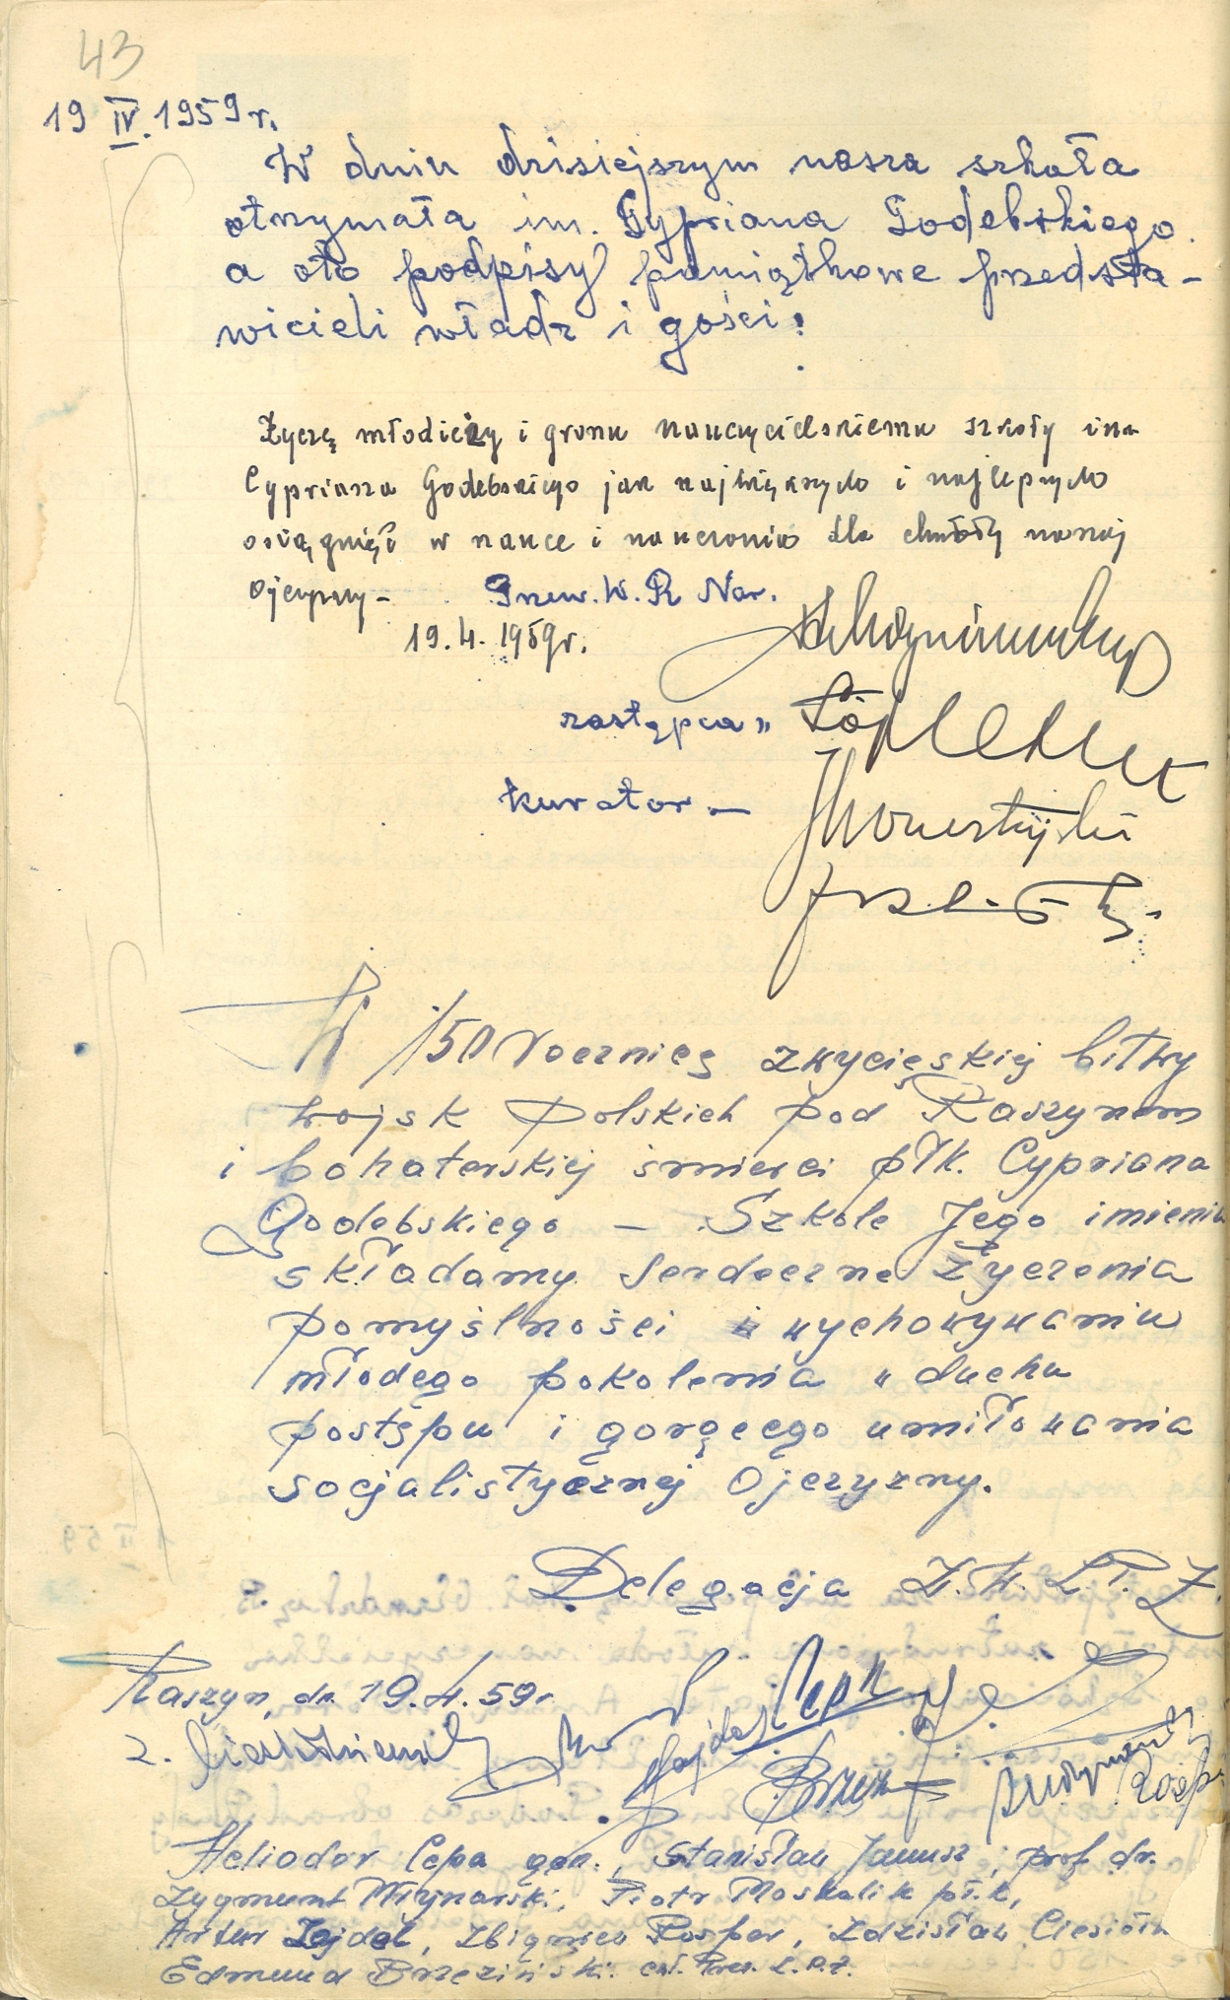 43
19 IV. 1959 r.
W dniu dzisiejszym nasza szkoła
otrzymała im. Cypriana Godebskiego
a oto podpisy pamiątkowe przedsta-
wicieli władz i gości:
Życzę młodzieży i gronu nauczycielskiemu szkoły im
Cypriana Godebskiego jak największych i najlepszych
osiągnięć w nauce i nauczaniu dla chwały naszej
Ojczyzny -
Przew. W. R. Nar.
19. 4. 1959 r.
zastępca "
kurator -
W 150 rocznicę zwycięskiej bitwy
wojsk Polskich pod Raszynem
i bohaterskiej śmierci płk. Cypriana
Godebskiego - Szkole Jego imienia
składamy serdeczne życzenia
pomyślności w wychowywaniu
młodego pokolenia w duchu
postępu i gorącego umiłowania
socjalistycznej Ojczyzny.
Delegacja Z. W. L. P. Ż.
Raszyn, dn. 19. 4. 59 r
Heliodor Cepa gen., Stanisław Janusz, prof. dr.
Zygmunt Młynarski, Piotr Moskalik płk,
Artur Zejdel, Zbigniew Rosper, Zdzisław
Edmund Brzeziński L. P. Ż.